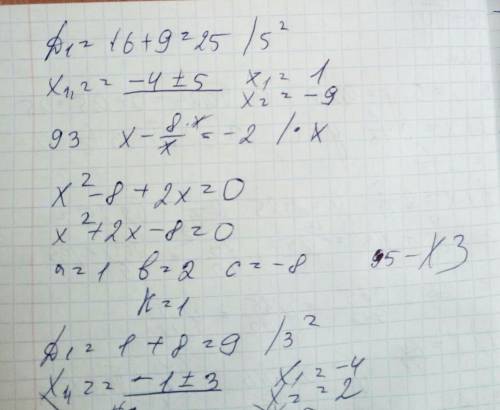 D₁ = 16 + 9 = 25 / 5²
x₁,₂ = -4 ± 5   x₁ = 1
x₂ = -9
93   x - 8/x ·x = -2 / · x
x² - 8 + 2x = 0
x² + 2x - 8 = 0
a = 1   b = 2   c = -8   95 - X3
K = 1
D₁ = 1 + 8 = 9 / 3²
x₁,₂ = -1 ± 3   x₁ = -4
x₂ = 2